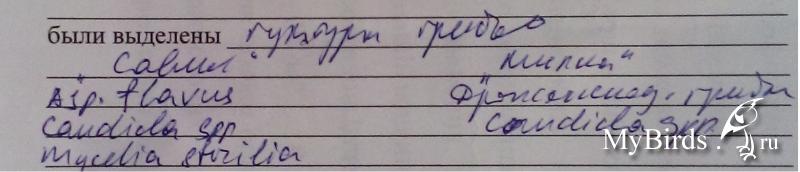 были выделены культуры грибов
"Савил" "Милка"
Asp. flavus Дрожжеподоб. грибы
Candida spp Candida spp.
Mycelia sterilia
MyBirds.ru